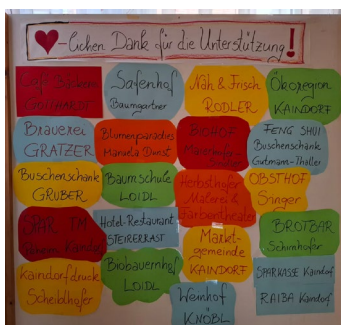 -lichen Dank für die Unterstützung!
Café Bäckerei
GOTTHARDT
Safenhof
Baumgartner
Nah & Frisch
RODLER
Ökoregion
KAINDORF
Brauerei
GRATZER
Blumenparadies
Manuela Dunst
BIOHOF
FENG SHUI
Buschenschank
Gutmann-Thaller
Buschenschank
GRUBER
Baumschule
LOIDL
Herbsthofer
Malerei &
Farbentheater
OBSTHOF
Singer
SPAR
Kaindorf
Hotel-Restaurant
STEIRERRAST
Markt-
gemeinde
KAINDORF
BROTBAR
Schirnhofer
Kaindorfdruck
Scheiblhofer
Biobauernhof
LOIDL
SPARKASSE Kaindorf
Weinhof
KNÖBL
RAIBA Kaindorf